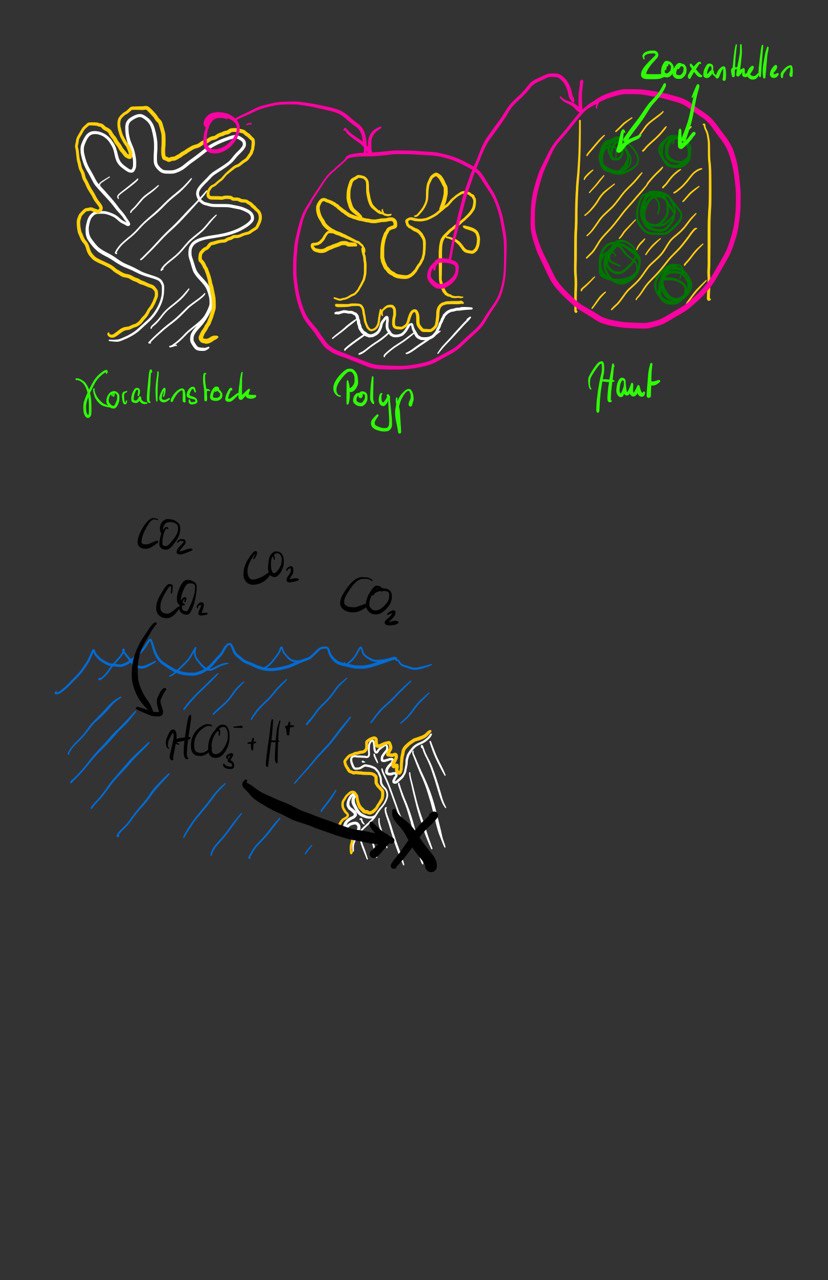 Zooxanthellen
Korallenstock
Polyp
Haut
CO₂
CO₂
CO₂
CO₂
HCO₃⁻ + H⁺
X